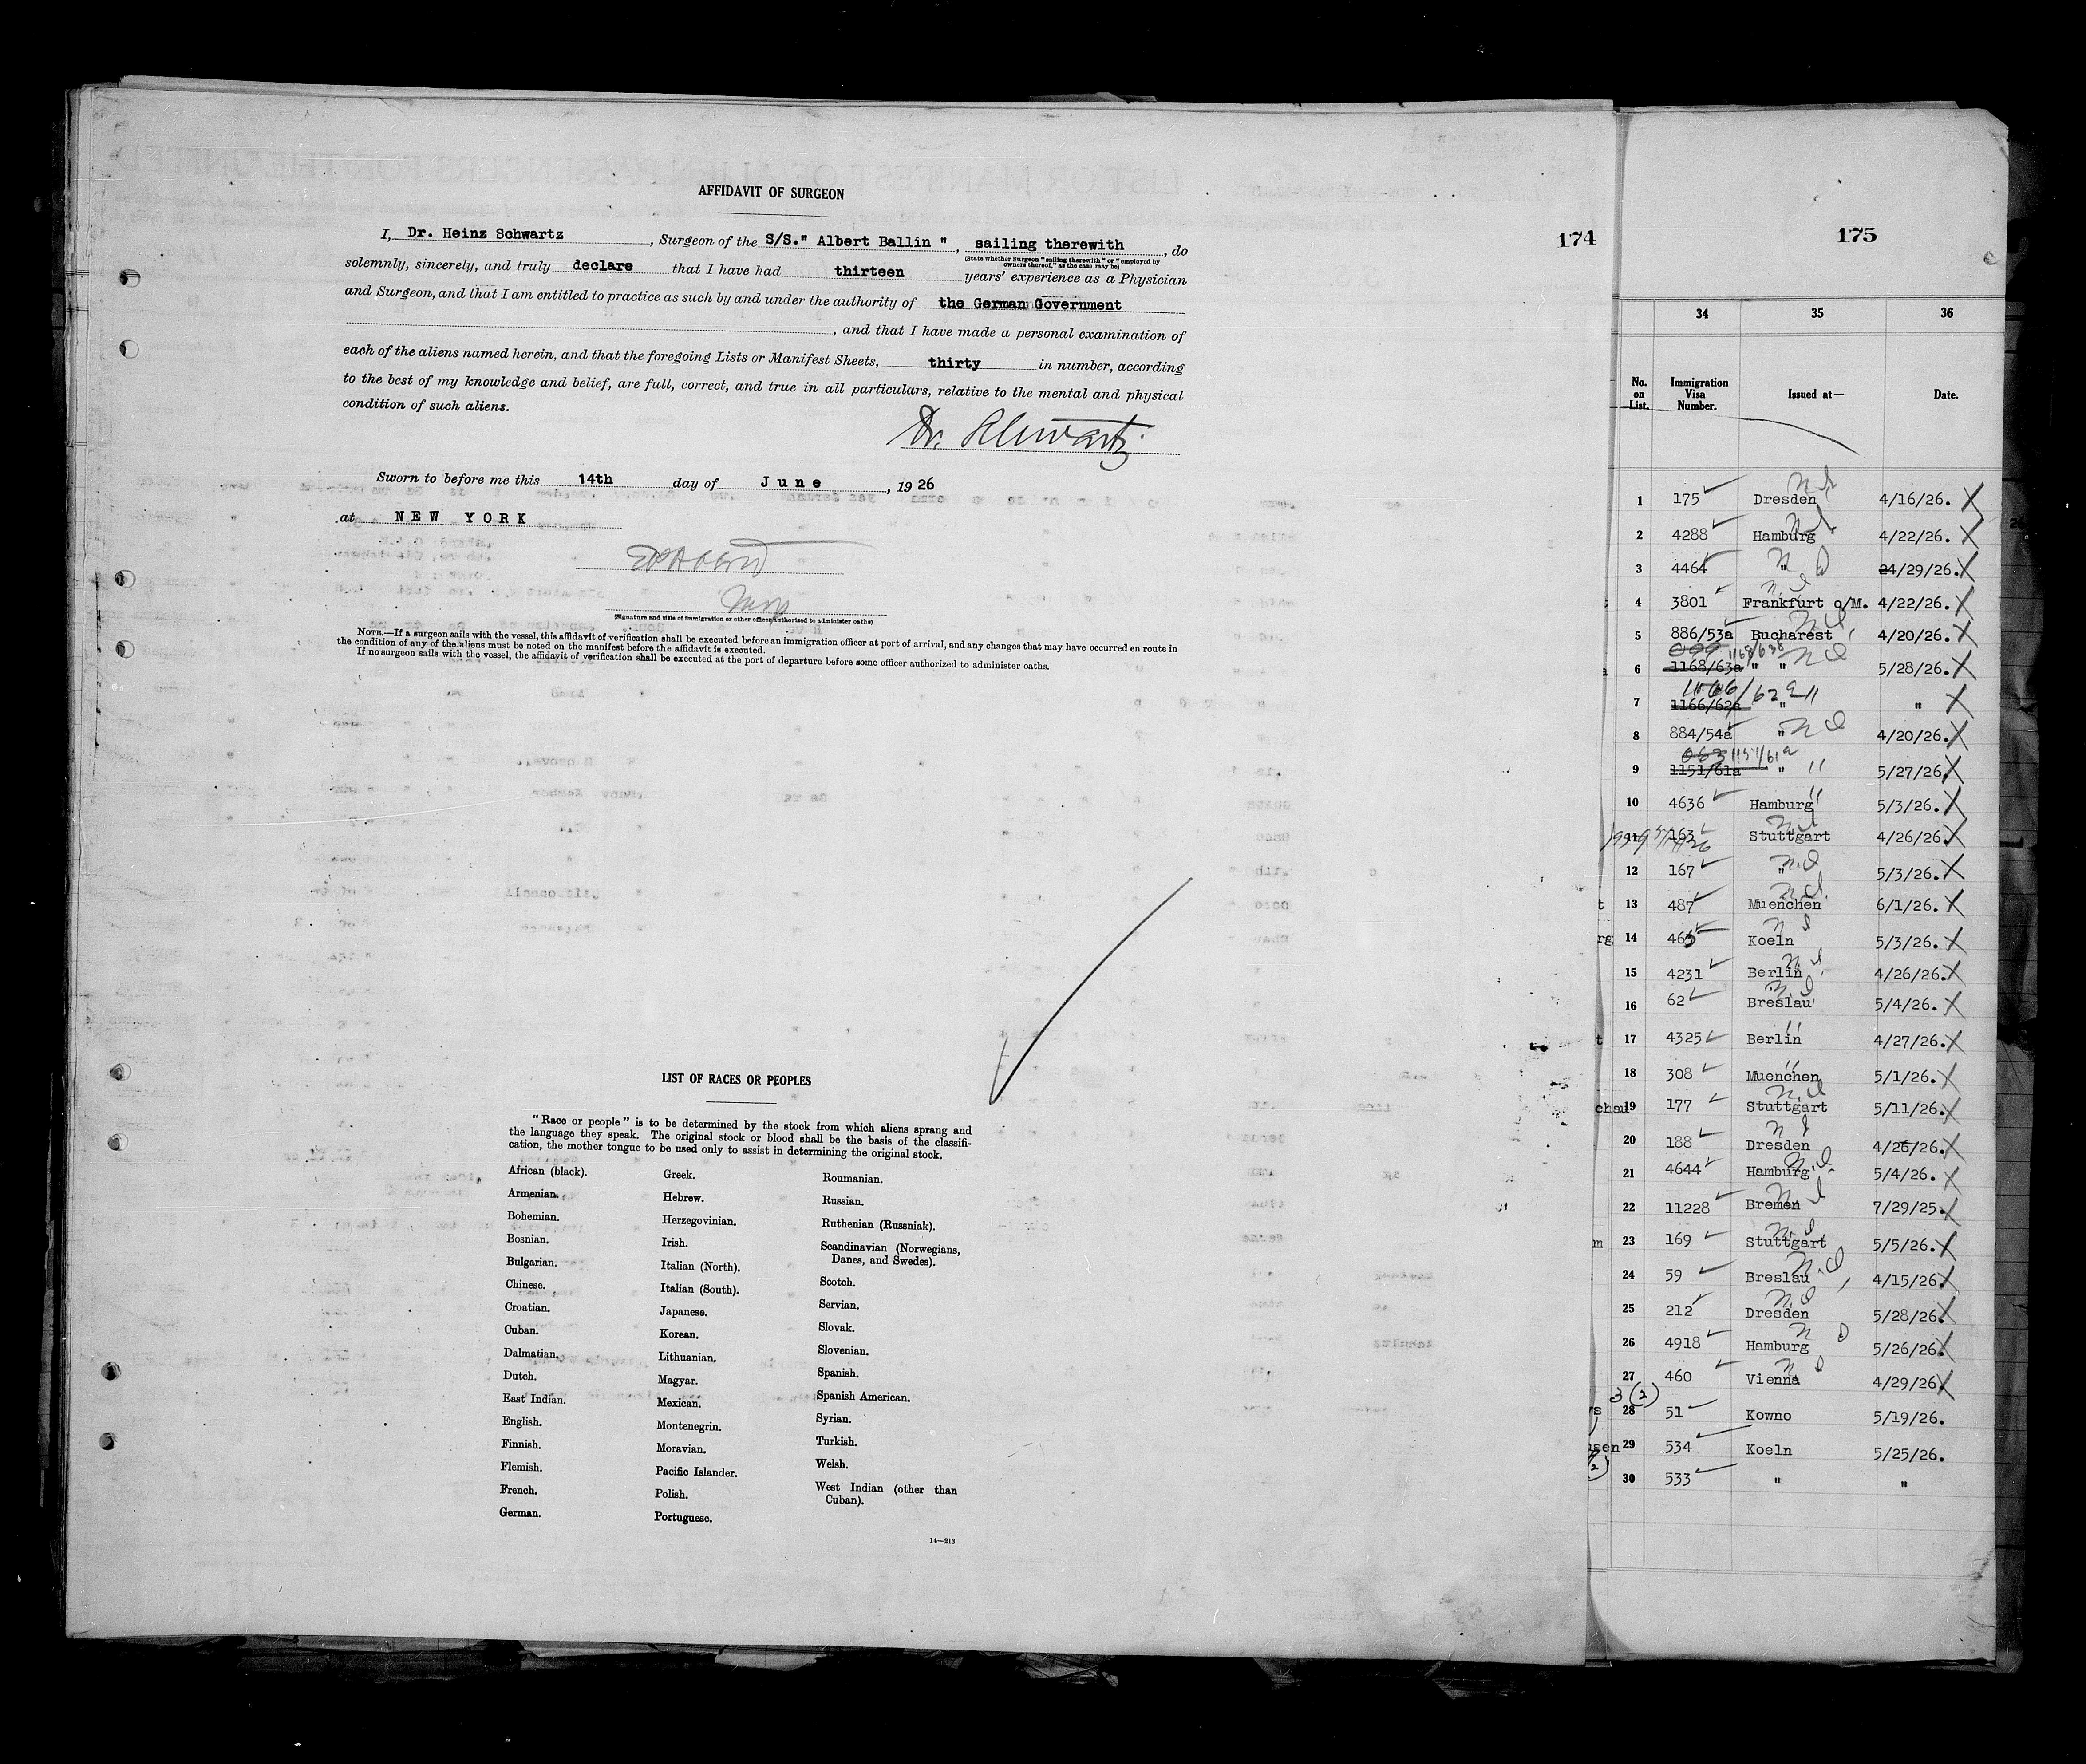 AFFIDAVIT OF SURGEON
I, Dr. Heinz Schwartz, Surgeon of the S/S." Albert Ballin ", sailing therewith, do
(State whether Surgeon "sailing therewith" or "employed by
owners thereof," as the case may be)
solemnly, sincerely, and truly declare that I have had thirteen years' experience as a Physician
and Surgeon, and that I am entitled to practice as such by and under the authority of the German Government
, and that I have made a personal examination of
each of the aliens named herein, and that the foregoing Lists or Manifest Sheets, thirty in number, according
to the best of my knowledge and belief, are full, correct, and true in all particulars, relative to the mental and physical
condition of such aliens.
Dr. Schwartz
Sworn to before me this 14th day of June, 1926
at NEW YORK
(Signature and title of immigration or other officer authorized to administer oaths)
NOTE.—If a surgeon sails with the vessel, this affidavit of verification shall be executed before an immigration officer at port of arrival, and any changes that may have occurred en route in
the condition of any of the aliens must be noted on the manifest before the affidavit is executed.
If no surgeon sails with the vessel, the affidavit of verification shall be executed at the port of departure before some officer authorized to administer oaths.
LIST OF RACES OR PEOPLES
"Race or people" is to be determined by the stock from which aliens sprang and
the language they speak. The original stock or blood shall be the basis of the classifi-
cation, the mother tongue to be used only to assist in determining the original stock.
African (black).
Armenian.
Bohemian.
Bosnian.
Bulgarian.
Chinese.
Croatian.
Cuban.
Dalmatian.
Dutch.
East Indian.
English.
Finnish.
Flemish.
French.
German.
Greek.
Hebrew.
Herzegovinian.
Irish.
Italian (North).
Italian (South).
Japanese.
Korean.
Lithuanian.
Magyar.
Mexican.
Montenegrin.
Moravian.
Pacific Islander.
Polish.
Portuguese.
Roumanian.
Russian.
Ruthenian (Russniak).
Scandinavian (Norwegians,
Danes, and Swedes).
Scotch.
Servian.
Slovak.
Slovenian.
Spanish.
Spanish American.
Syrian.
Turkish.
Welsh.
West Indian (other than
Cuban).
14—213
174
175
34 35 36
No. on List. Immigration Visa Number. Issued at— Date.
1 175 Dresden 4/16/26.
2 4288 Hamburg 4/22/26.
3 4464 " 4/29/26.
4 3801 Frankfurt o/M. 4/22/26.
5 886/53a Bucharest 4/20/26.
1168/638
6 1168/63a " " 5/28/26.
1166/62a "
7 1166/62a " "
8 884/54a " 4/20/26.
1151/61a
9 1151/61a " " 5/27/26
10 4636 Hamburg 5/3/26.
11 163 Stuttgart 4/26/26
12 167 " 5/3/26.
13 487 Muenchen 6/1/26.
14 465 Koeln 5/3/26.
15 4231 Berlin 4/26/26.
16 62 Breslau 5/4/26.
17 4325 Berlin 4/27/26.
18 308 Muenchen 5/1/26.
19 177 Stuttgart 5/11/26.
20 188 Dresden 4/26/26.
21 4644 Hamburg 5/4/26.
22 11228 Bremen 7/29/25.
23 169 Stuttgart 5/5/26.
24 59 Breslau 4/15/26
25 212 Dresden 5/28/26
26 4918 Hamburg 5/26/26
27 460 Vienna 4/29/26
3 (2)
28 51 Kowno 5/19/26.
29 534 Koeln 5/25/26.
30 533 " "